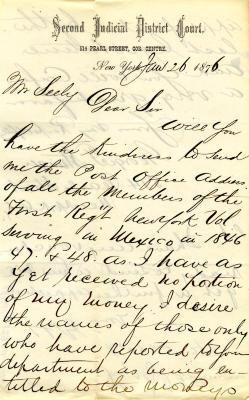 Second Judicial District Court,
514 PEARL STREET, COR. CENTRE.
New York Jan 26 1876
Mr Seely Dear Sir
Will You
have the Kindness to send
me the Post Office Address
of all the Members of the
First Regt NewYork Vol
serving in Mexico in 1846
47. & 48. as I have as
Yet received no potion
of my money I desire
the names of those only
who have reported to Your
department as being en-
titled to the moneys